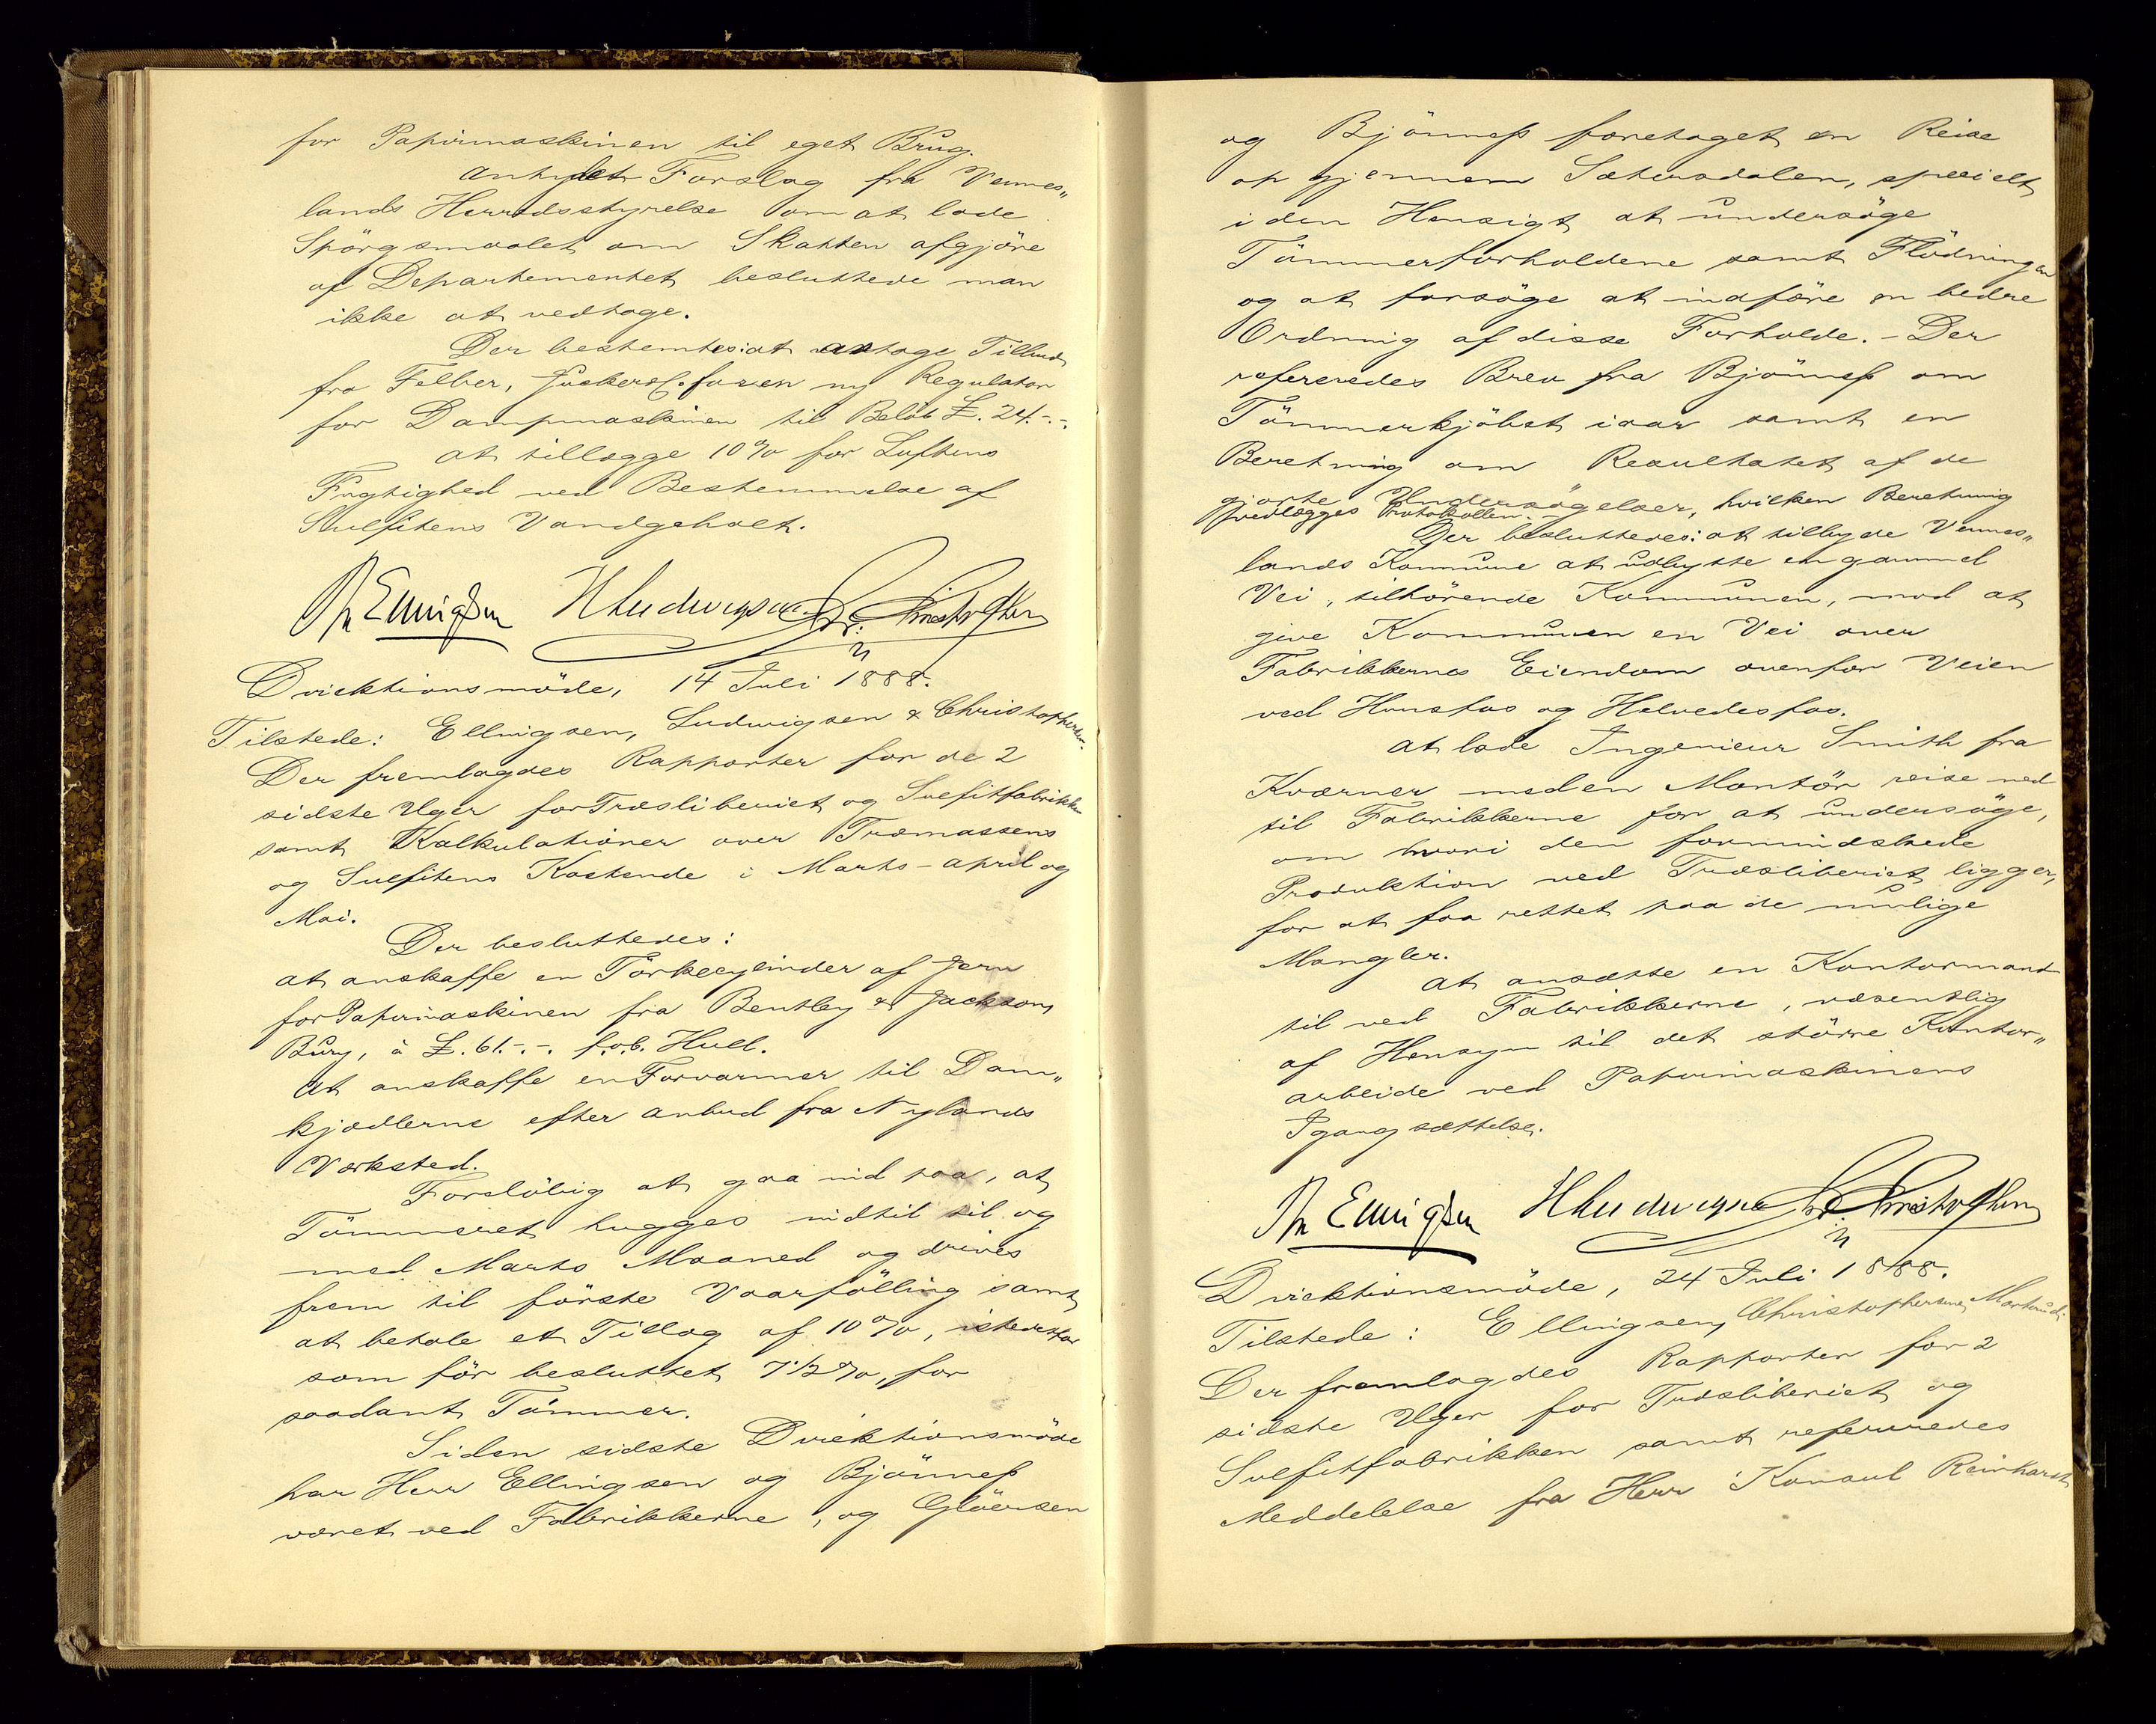 for Papirmaskinen til eget Brug.
Antydet Forslag fra Vennes„
lands Herredsstyrelse om at lade
Spörgsmaalet om Skatten afgjöre
af Departementet besluttede man
ikke at vedtage.
Der bestemtes: at antage Tilbud
fra Felber, Jucker & C. for en ny Regulator
for Dampmaskinen til Belöb £. 24.-.-.
at tillægge 10 % for Luftens
Fugtighed ved Bestemmelse af
Sulfitens Vandgehalt.
Th Ellingsen HLudwigsen Chr. Christophersen
Direktionsmöde, 14 Juli 1888.
Tilstede: Ellingsen, Ludwigsen & Christophersen.
Der fremlagdes Rapporter for de 2
sidste Uger for Træsliberiet og Sulfitfabrikken
samt Kalkulationer over Træmassens
og Sulfitens Kostende i Marts - April og
Mai.
Der besluttedes:
at anskaffe en Törkecylinder af Jern
for Papirmaskinen fra Bentley & Jackson,
Bury, à £. 61.-.-. f.o.b. Hull.
At anskaffe en Forvarmer til Dam„
kjedlerne efter Anbud fra Nylands
Værksted.
Forslöbig at gaa ind paa, at
Tömmeret hugges indtil til og
med Marts Maaned og drives
frem til förste Vaarfölling samt
at betale et Tillæg af 10 %, istedetfor
som för besluttet 7 1/2 %, for
saadant Tömmer.
Siden sidste Direktionsmöde
har Herr Ellingsen og Bjönness
været ved Fabrikkerne, og Glöersen
og Bjönness foretaget en Reise
op gjennem Sætersdalen, specielt
i den Hensigt at undersöge
Tömmerforholdene samt Flödningen
og at forsöge at indföre en bedre
Ordning af disse Forholde. - Der
refereredes Brev fra Bjönness om
Tömmerkjöbet iaar samt en
Beretning om Resultatet af de
gjorte Undersögelser, hvilken Beretning
vedlægges Protokollen.
Der besluttedes: at tilbyde Vennes„
lands Kommune at udbytte en gammel
Vei, tilhörende Kommunen, mod at
give Kommunen en Vei over
Fabrikkernes Eiendom ovenfor Veien
ved Hunsfos og Helvedesfos.
At lade Ingenieur Smith fra
Kværner med en Montör reise ned
til Fabrikkerne for at undersöge,
om hvori den formindskede
Produktion ved Træsliberiet ligger,
for at faa rettet paa de mulige
Mangler.
At ansætte en Kontormand
til ved Fabrikkerne, væsentlig
af Hensyn til det större Kontor„
arbeide ved Papirmaskinens
Igangsættelse.
Th Ellingsen HLudwigsen Chr. Christophersen
Direktionsmöde, 24 Juli 1888.
Tilstede: Ellingsen, Christophersen,
Der fremlagdes Rapporter for 2
sidste Uger for Træsliberiet og
Sulfitfabrikken samt refereredes
Meddelelse fra Herr Konsul Reinhardt